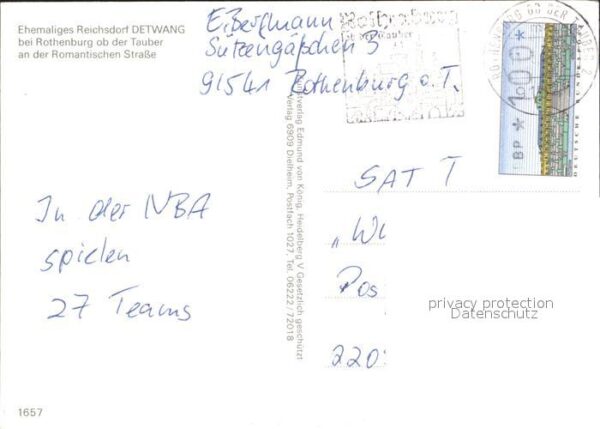 Ehemaliges Reichsdorf DETWANG
bei Rothenburg ob der Tauber
an der Romantischen Straße
E. Bergmann
Sülzengäßchen 5
91541 Rothenburg o. T.
Rothenburg
ob der Tauber
ROTHENBURG OB DER TAUBER 2
DBP * 1,00 *
DEUTSCHE BUNDESPOST
In der NBA
spielen
27 Teams
Kunstverlag Edmund von König, Heidelberg V Gesetzlich geschützt
Verlag 6909 Dielheim, Postfach 1027, Tel. 06222/72018
SAT
„
Pos
220
privacy protection
Datenschutz
1657